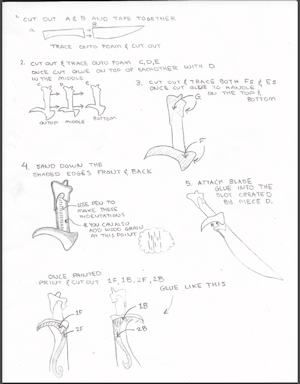 1. CUT OUT A & B AND TAPE TOGETHER
A. B
TRACE ONTO FOAM & CUT OUT
2. CUT OUT & TRACE ONTO FOAM C, D, E
ONCE CUT GLUE ON TOP OF EACHOTHER WITH D
IN THE MIDDLE
ON TOP MIDDLE BOTTOM
3. CUT OUT & TRACE BOTH FS & ES
ONCE CUT GLUE TO HANDLE
ON THE TOP &
BOTTOM
4. SAND DOWN THE
SHADED EDGES FRONT & BACK
USE PEN TO
MAKE THESE
INDENTATIONS
& YOU CAN ALSO
ADD WOOD GRAIN
AT THIS POINT
5. ATTACH BLADE
GLUE INTO THE
SLOT CREATED
BY PIECE D.
ONCE PAINTED
PRINT & CUT OUT 1F, 1B, 2F, 2B
GLUE LIKE THIS
1F
2F
1B
2B